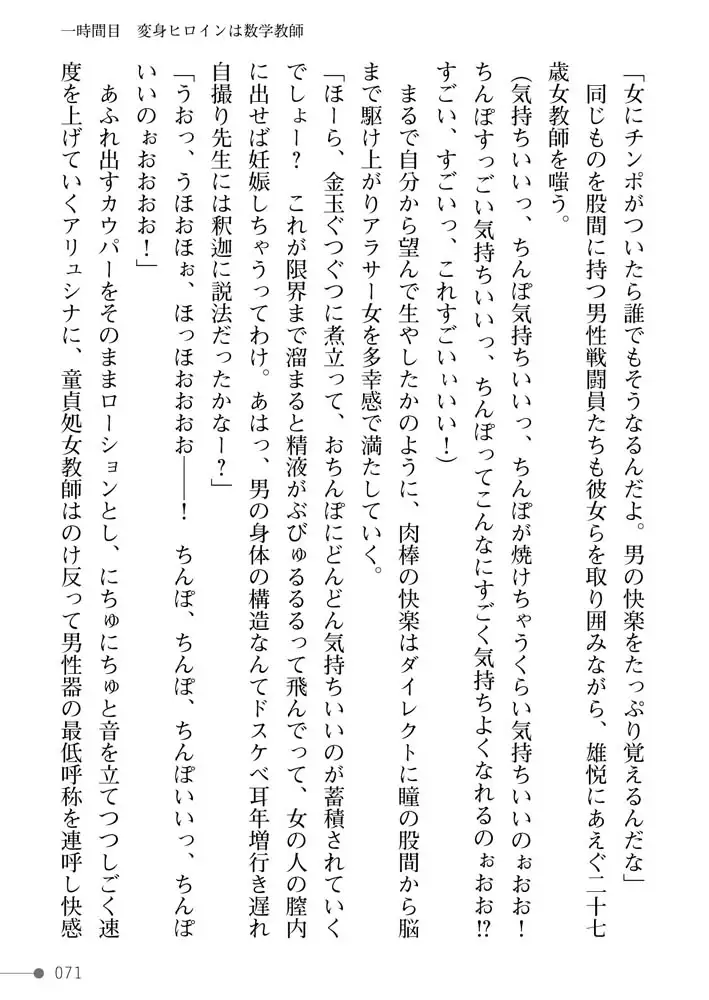 一時間目　変身ヒロインは数学教師
「女にチンポがついたら誰でもそうなるんだよ。男の快楽をたっぷり覚えるんだな」
　同じものを股間に持つ男性戦闘員たちも彼女らを取り囲みながら、雄悦にあえぐ二十七
歳女教師を嗤う。
（気持ちいいっ、ちんぽ気持ちいいっ、ちんぽが焼けちゃうくらい気持ちいいのぉおお！
ちんぽすっごい気持ちいいっ、ちんぽってこんなにすごく気持ちよくなれるのぉおお!?
すごい、すごいっ、これすごいぃいい！）
　まるで自分から望んで生やしたかのように、肉棒の快楽はダイレクトに瞳の股間から脳
まで駆け上がりアラサー女を多幸感で満たしていく。
「ほーら、金玉ぐつぐつに煮立って、おちんぽにどんどん気持ちいいのが蓄積されていく
でしょー？　これが限界まで溜まると精液がぶびゅるるるって飛んでって、女の人の膣内
に出せば妊娠しちゃうってわけ。あはっ、男の身体の構造なんてドスケベ耳年増行き遅れ
自撮り先生には釈迦に説法だったかなー？」
「うおっ、うほおほぉ、ほっほおおおお――！　ちんぽ、ちんぽ、ちんぽいいっ、ちんぽ
いいのぉおおおお！」
　あふれ出すカウパーをそのままローションとし、にちゅにちゅと音を立てつつしごく速
度を上げていくアリュシナに、童貞処女教師はのけ反って男性器の最低呼称を連呼し快感
071